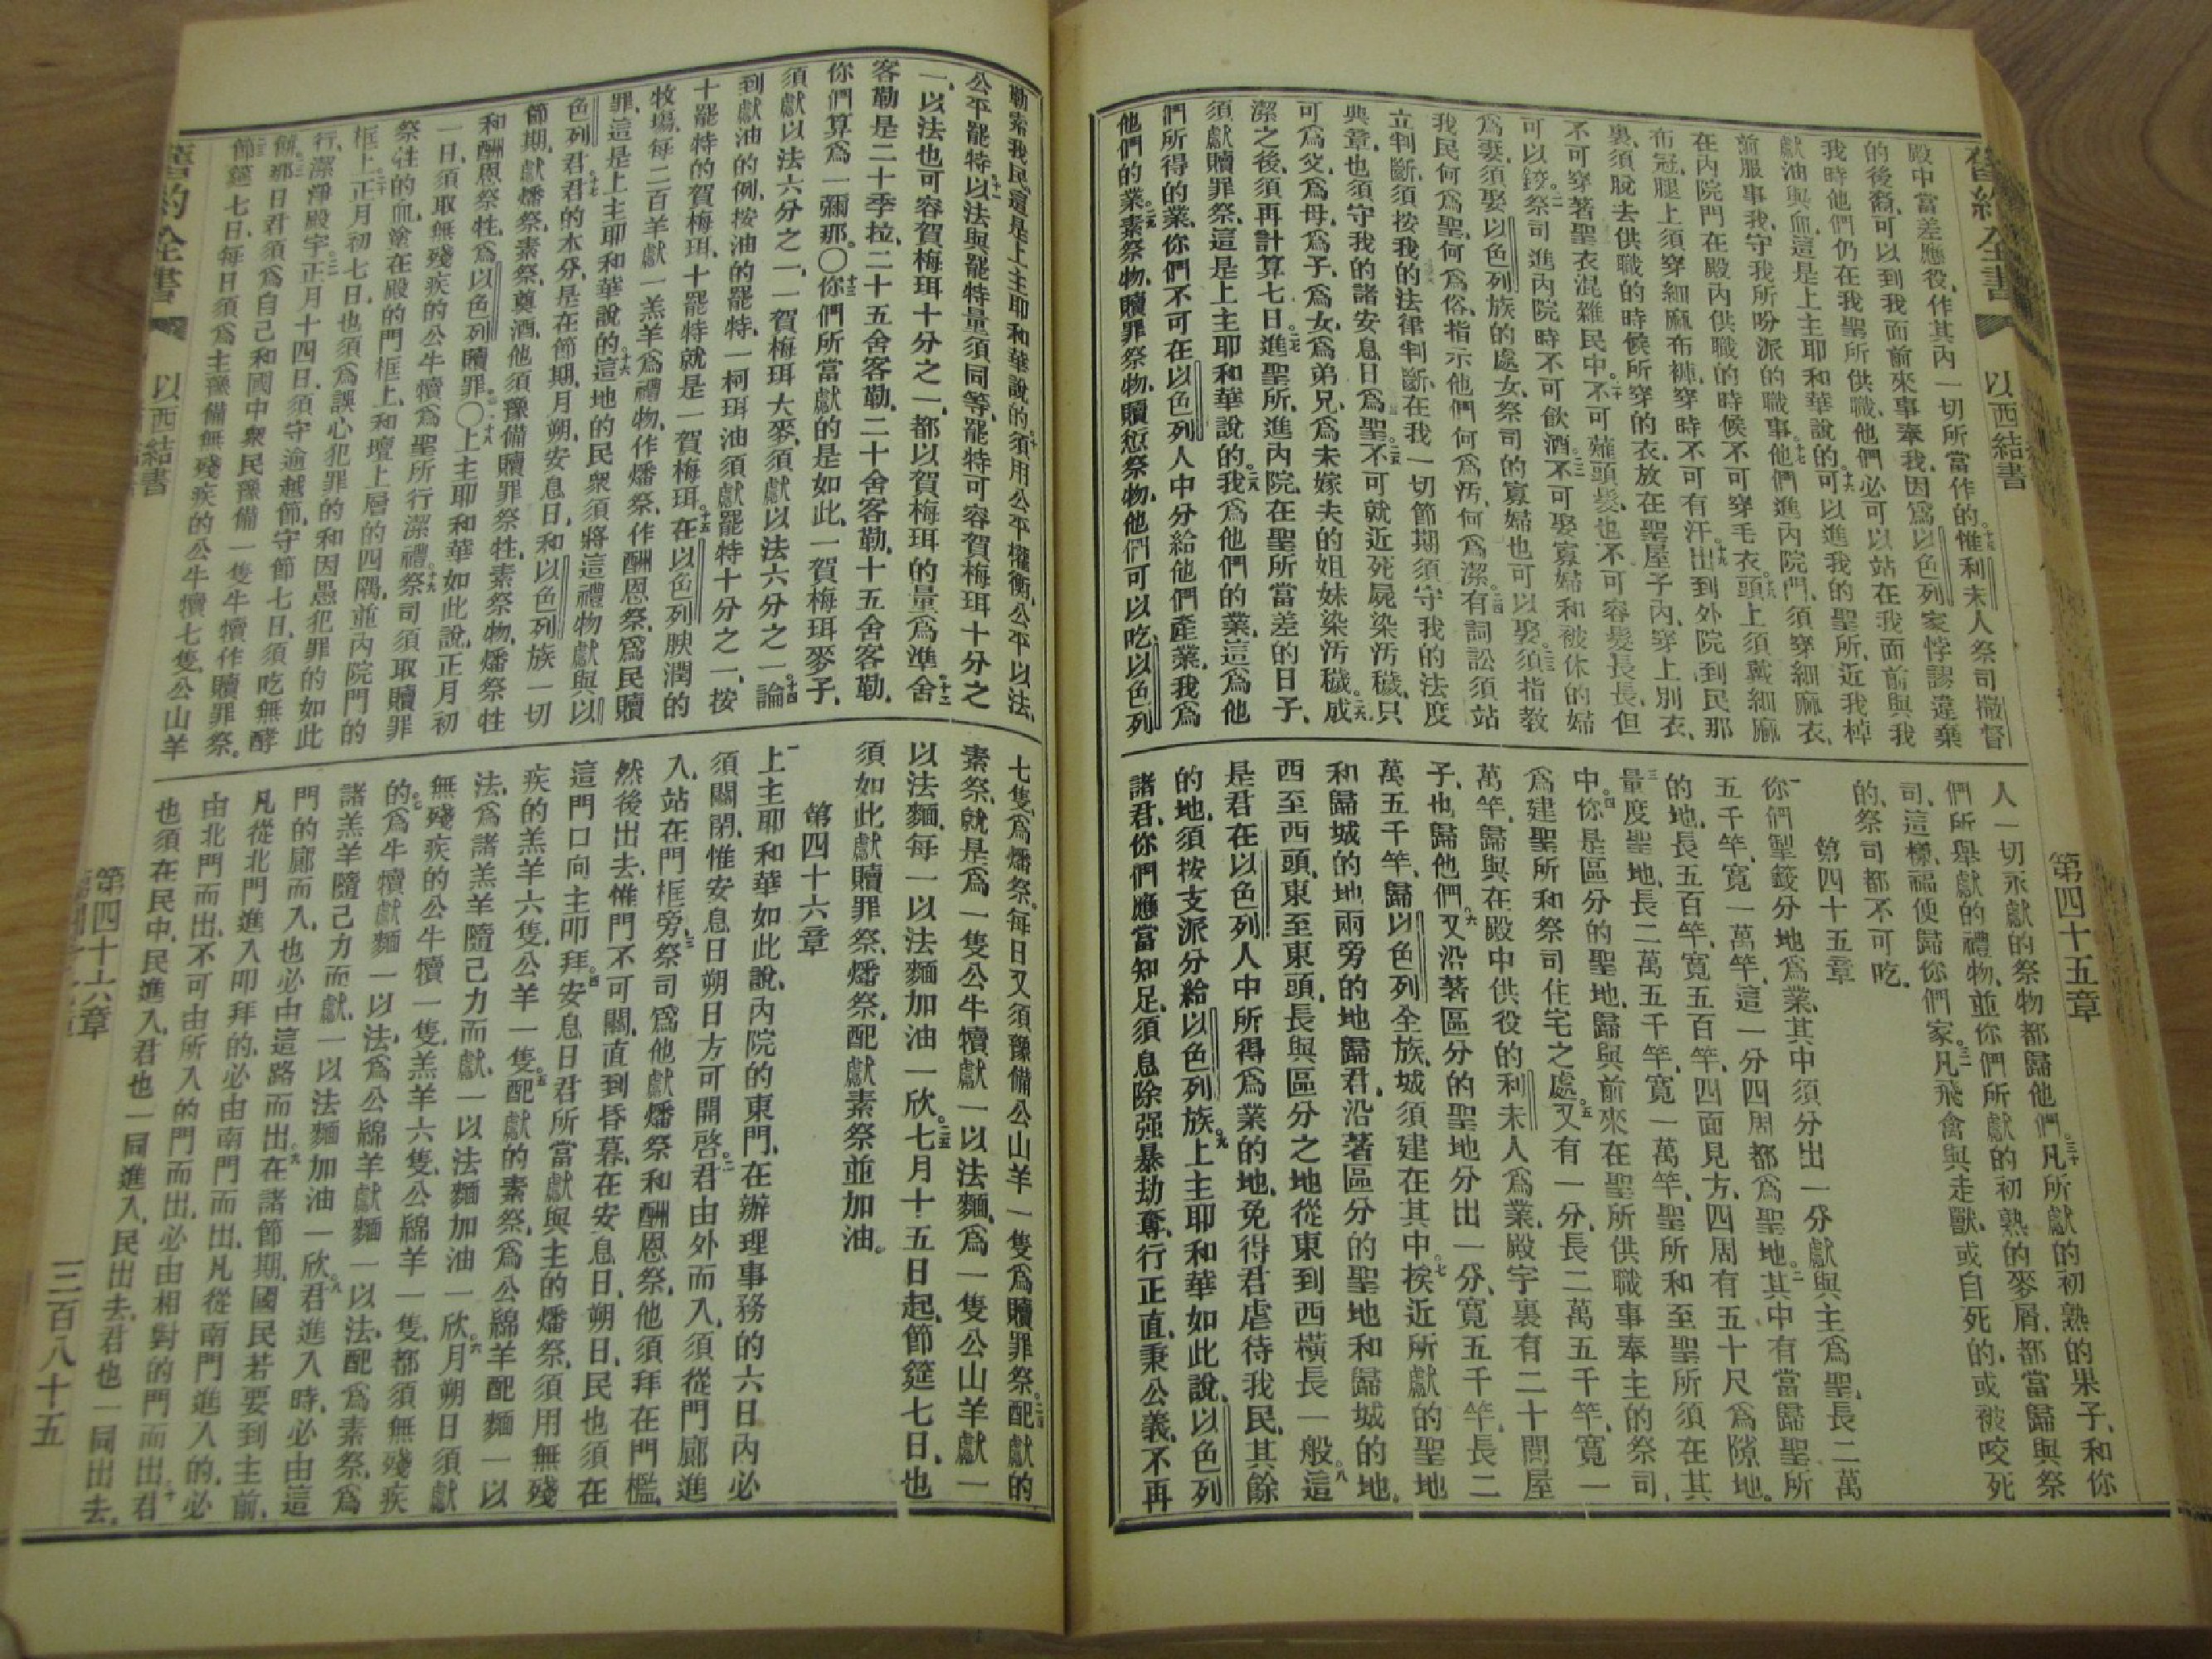 舊約全書
以西結書
第四十五章
殿中當差應役、作其內一切所當作的。十五惟利未人祭司撒督
的後裔、可以到我面前來事奉我、因爲以色列家悖謬違棄
我時、他們仍在我聖所供職、他們必可以站在我面前、與我
獻油與血、這是上主耶和華說的。十六可以進我的聖所、近我棹
前服事我、守我所吩派的職事。十七他們進內院門、須穿細麻衣、
在內院門在殿內供職的時候、不可穿毛衣。十八頭上須戴細麻
布冠、腿上須穿細麻布褲、穿時不可有汗。十九出到外院、到民那
裏、須脫去供職的時候所穿的衣、放在聖屋子內、穿上別衣、
不可穿著聖衣混雜民中。二十不可薙頭髮、也不可容髮長長、但
可以鉸。二一祭司進內院時不可飲酒。二二不可娶寡婦和被休的婦
爲妻、須娶以色列族的處女、祭司的寡婦也可以娶。二三須指教
我民何爲聖、何爲俗、指示他們何爲汚、何爲潔。二四有詞訟須站
立判斷、須按我的法律判斷、在我一切節期須守我的法度
典章、也須守我的諸安息日爲聖。二五不可就近死屍染汚穢、只
可爲父、爲母、爲子、爲女、爲弟兄、爲未嫁夫的姐妹染汚穢。二六成
潔之後、須再計算七日。二七進聖所、進內院、在聖所當差的日子、
須獻贖罪祭、這是上主耶和華說的。二八我爲他們的業、這爲他
們所得的業、你們不可在以色列人中分給他們產業、我爲
他們的業。二九素祭物、贖罪祭物、贖愆祭物、他們可以吃、以色列
人一切永獻的祭物都歸他們。三十凡所獻的初熟的果子、和你
們所舉獻的禮物、並你們所獻的初熟的麥屑、都當歸與祭
司、這樣、福便歸你們家。三一凡飛禽與走獸、或自死的、或被咬死
的、祭司都不可吃。
第四十五章
一你們掣籤分地爲業、其中須分出一分獻與主爲聖、長二萬
五千竿、寬一萬竿、這一分四周都爲聖地。二其中有當歸聖所
的地、長五百竿、寬五百竿、四面見方、四周有五十尺爲隙地。
三量度聖地、長二萬五千竿、寬一萬竿、聖所和至聖所須在其
中。四你是區分的聖地、歸與前來在聖所供職事奉主的祭司、
爲建聖所和祭司住宅之處。五又有一分、長二萬五千竿、寬一
萬竿、歸與在殿中供役的利未人爲業、殿宇裏有二十間屋
子、也歸他們。六又沿著區分的聖地分出一分、寬五千竿、長二
萬五千竿、歸以色列全族、城須建在其中。七挨近所獻的聖地
和歸城的地兩旁的地歸君、沿著區分的聖地和歸城的地、
西至西頭、東至東頭、長與區分之地從東到西橫長一般。八這
是君在以色列人中所得爲業的地、免得君虐待我民、其餘
的地、須按支派分給以色列族。九上主耶和華如此說、以色列
諸君、你們應當知足、須息除强暴劫奪、行正直、秉公義、不再
勒索我民、這是上主耶和華說的。十須用公平權衡、公平以法、
公平罷特。十一以法與罷特量須同等、罷特可容賀梅珥十分之
一、以法也可容賀梅珥十分之一、都以賀梅珥的量爲準。十二舍
客勒是二十季拉、二十五舍客勒、二十舍客勒、十五舍客勒、
你們算爲一彌那。〇十三你們所當獻的是如此、一賀梅珥麥子、
須獻以法六分之一、一賀梅珥大麥、須獻以法六分之一。十四論
到獻油的例、按油的罷特、一柯珥油須獻罷特十分之一、按
十罷特的賀梅珥、十罷特就是一賀梅珥。十五在以色列腴潤的
牧場、每二百羊獻一羔羊爲禮物、作燔祭、作酬恩祭、爲民贖
罪、這是上主耶和華說的。十六這地的民衆須將這禮物獻與以
色列君。十七君的本分、是在節期、月朔、安息日、和以色列族一切
節期、獻燔祭、素祭、奠酒、他須豫備贖罪祭牲、素祭物、燔祭牲
和酬恩祭牲、爲以色列贖罪。〇十八上主耶和華如此說、正月初
一日、須取無殘疾的公牛犢、爲聖所行潔禮。十九祭司須取贖罪
祭牲的血、塗在殿的門框上、和壇上層的四隅、並內院門的
框上。二十正月初七日、也須爲誤心犯罪的和因愚犯罪的如此
行、潔淨殿宇。二一正月十四日、須守逾越節、守節七日、須吃無酵
餠。二二那日君須爲自己和國中衆民豫備一隻牛犢作贖罪祭。
二三節筵七日、每日須爲主豫備無殘疾的公牛犢七隻、公山羊
七隻、爲燔祭、每日又須豫備公山羊一隻爲贖罪祭。二四配獻的
素祭、就是爲一隻公牛犢獻一以法麵、爲一隻公山羊獻一
以法麵、每一以法麵加油一欣。二五七月十五日起、節筵七日、也
須如此獻贖罪祭、燔祭、配獻素祭並加油。
第四十六章
一上主耶和華如此說、內院的東門、在辦理事務的六日內必
須關閉、惟安息日朔日方可開啓。二君由外而入、須從門廊進
入、站在門框旁、三祭司爲他獻燔祭和酬恩祭、他須拜在門檻、
然後出去、惟門不可關、直到昏暮、在安息日、朔日、民也須在
這門口向主叩拜。四安息日君所當獻與主的燔祭、須用無殘
疾的羔羊六隻、公羊一隻。五配獻的素祭、爲公綿羊配麵一以
法、爲諸羔羊隨己力而獻、一以法麵加油一欣。六月朔日須獻
無殘疾的公牛犢一隻、羔羊六隻、公綿羊一隻、都須無殘疾
的。七爲牛犢獻麵一以法、爲公綿羊獻麵一以法、配爲素祭、爲
諸羔羊隨己力而獻、一以法麵加油一欣。八君進入時、必由這
門的廊而入、也必由這路而出。九在諸節期、國民若要到主前、
凡從北門進入叩拜的、必由南門而出、凡從南門進入的、必
由北門而出、不可由所入的門而出、必由相對的門而出。十君
也須在民中、民進入、君也一同進入、民出去、君也一同出去。
舊約全書
以西結書
第四十六章
三百八十五